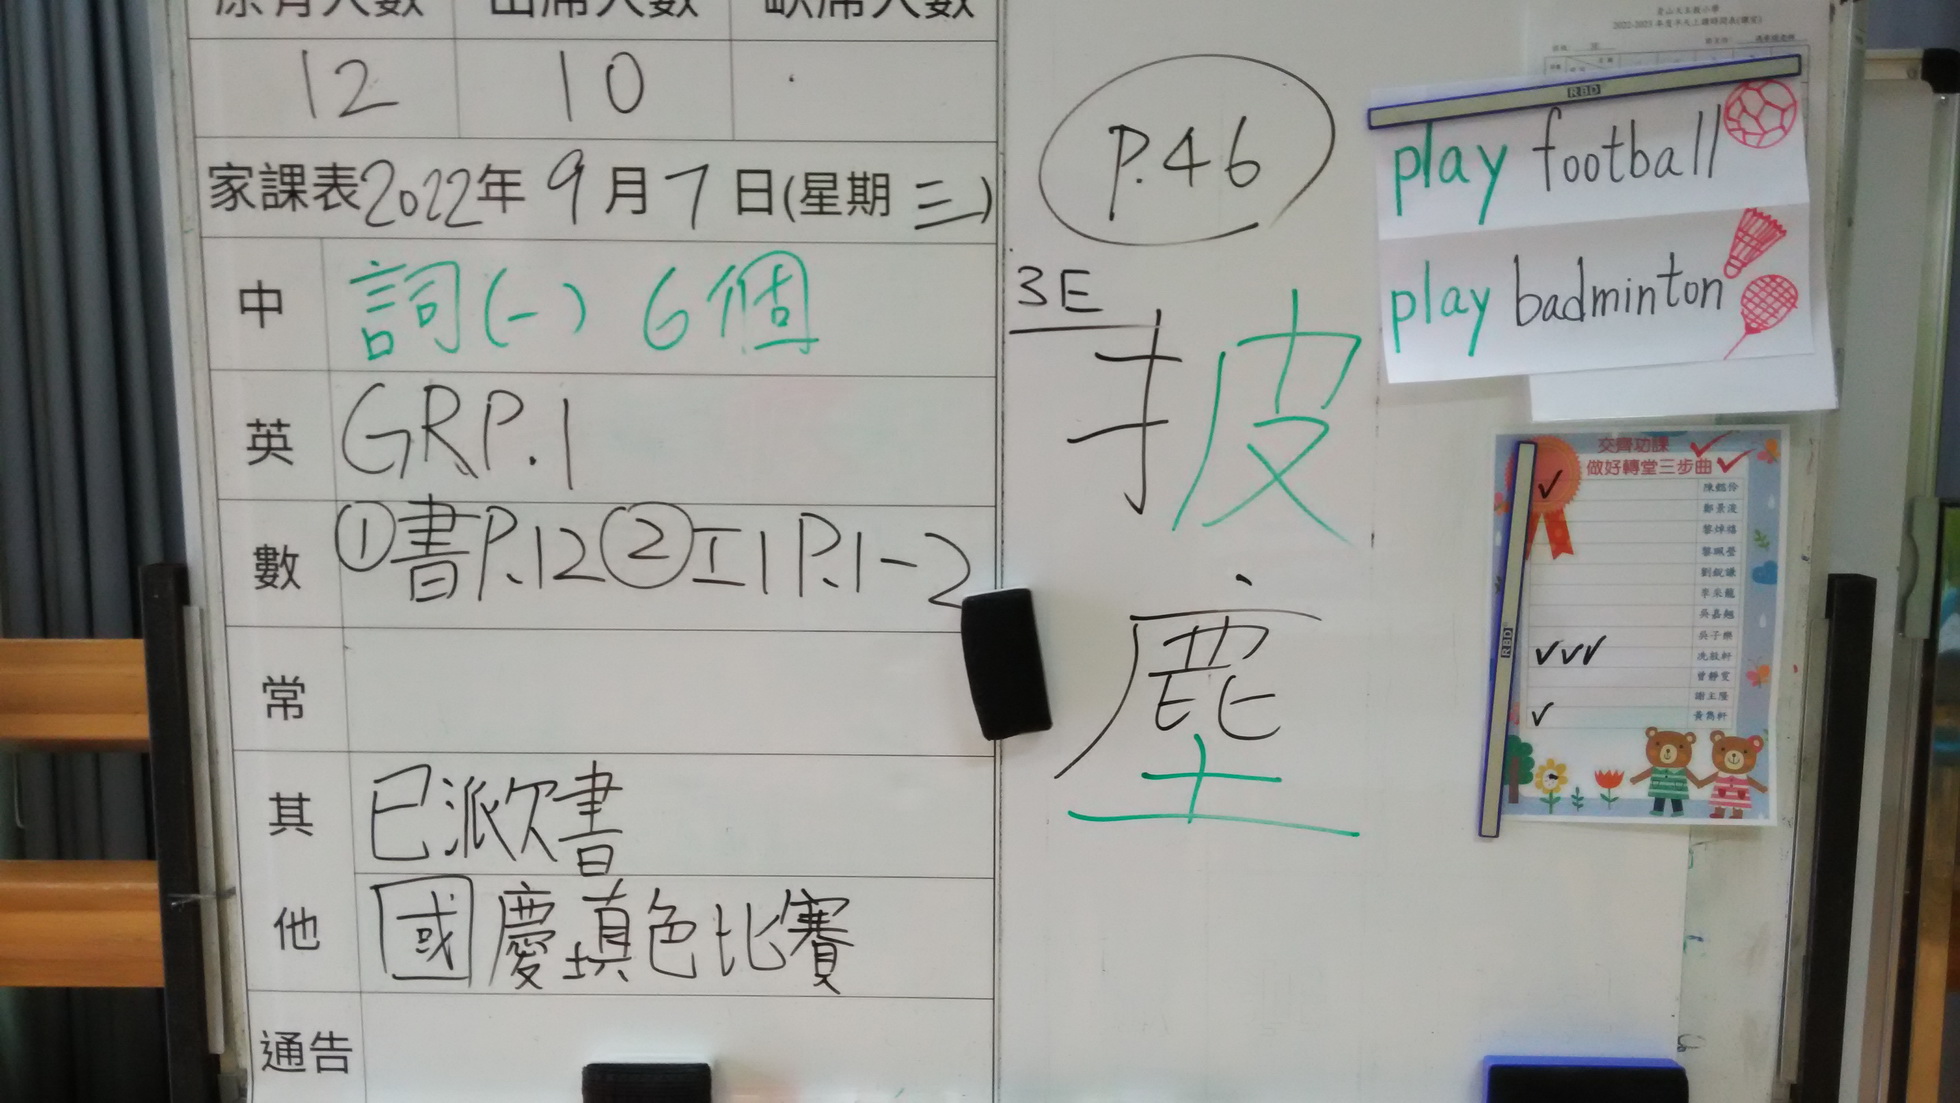 原有人數 出席人數 缺席人數
12 10
家課表2022年9月7日(星期三)
中 詞(一) 6個
英 GRP.1
數 ①書P.12②工1 P.1-2
常
其他
已派欠書
國慶填色比賽
通告
P.46
3E
披
塵
2022-2023
RBD
play football
play badminton
交齊功課
做好轉堂三步曲
RBD